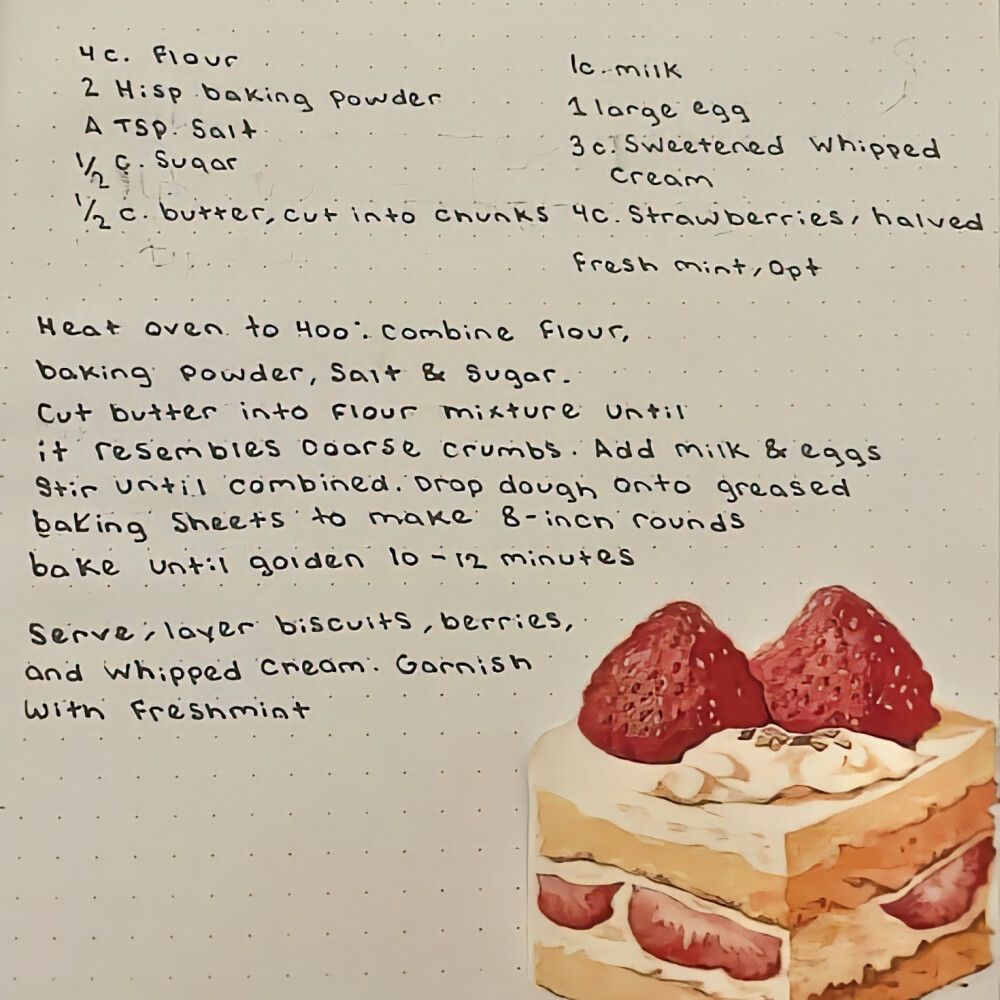 4 c. flour
2 Hisp baking powder
A TSP. Salt
1/2 c. Sugar
1/2 c. butter, cut into chunks
1c. milk
1 large egg
3 c. Sweetened whipped
cream
4c. Strawberries, halved
fresh mint, opt
Heat oven to 400°. Combine flour,
baking powder, Salt & Sugar.
Cut butter into flour mixture until
it resembles coarse crumbs. Add milk & eggs
Stir until combined. Drop dough onto greased
baking Sheets to make 8-inch rounds
bake until golden 10-12 minutes
Serve, layer biscuits, berries,
and whipped cream. Garnish
with freshmint